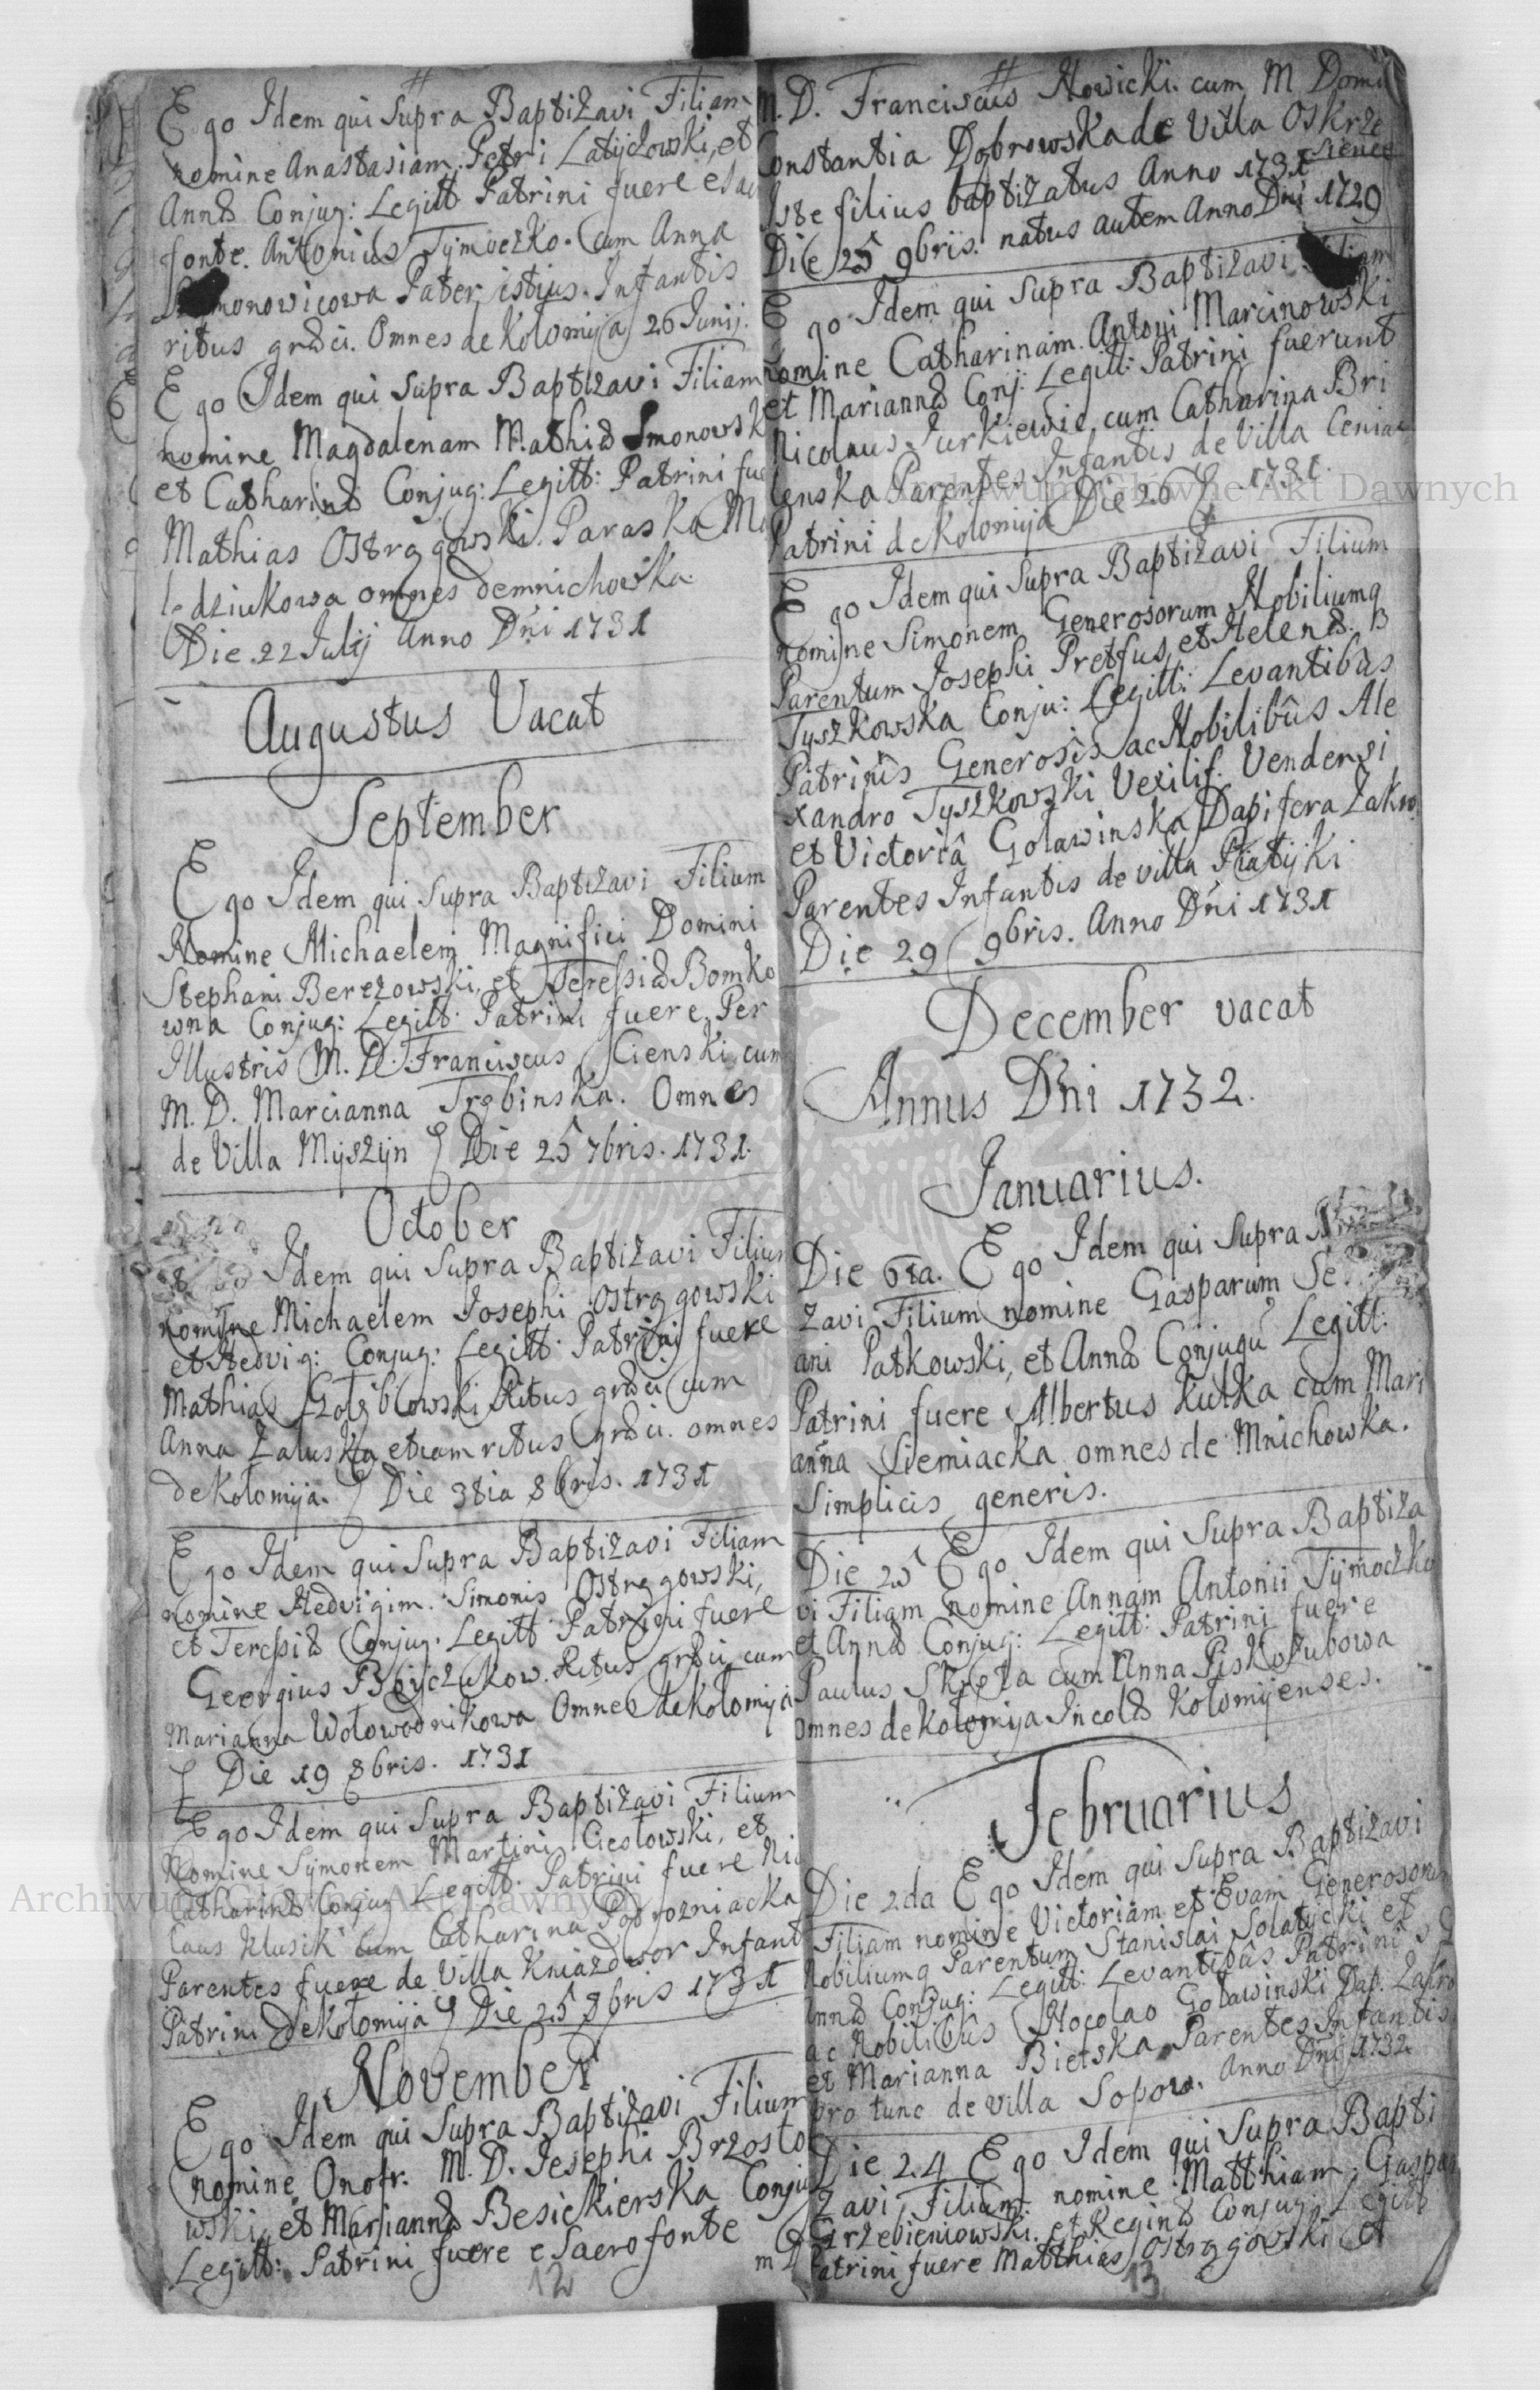 Ego Idem qui Supra Baptizavi Filiam
nomine Anastasiam Petri Latyczowski, et
Annæ Conjug: Legitt Patrini fuere e sac
fonte. Antonius Tymoczko. Cum Anna
monowicowa Pater istius Infantis
ritus græci. Omnes de Kolomyja 26 Junij.
Ego Idem qui Supra Baptizavi Filiam
nomine Magdalenam Mathiæ Smonowsk
et Catharinæ Conjug: Legitt: Patrini fue
Mathias Ostrągowski. Paraska Ma
ledziukowa omnes demnichowka
Die. 22 Julij Anno Dni 1731
Augustus Vacat
September
Ego Idem qui Supra Baptizavi Filium
Nomine Michaelem Magnifici Domini
Stephani Berezowski, et Teressiæ Bomko
wna Conjug: Legitt: Patrini fuere. Per
Illustris M. D. Franciscus Scienski cum
M. D. Marcianna Trębinska. Omnes
de Villa Myszyn Die 25 7bris. 1731.
October
Idem qui Supra Baptizavi Filium
nomine Michaelem Josephi Ostrągowski
et Hedvig: Conjug: Legitt: Patrini fuere
Mathias Gołęblowski Ritus græci cum
Anna Zaluska etiam ritus græci. omnes
de Kołomija. Die 3tia 8bris. 1731
Ego Idem qui Supra Baptizavi Filiam
nomine Hedvigim. Simonis Ostrągowski,
et Teressiæ Conjug. Legitt Patrini fuere
Georgius Boyczukow. Ritus græci cum
Marianna Wołowodnikowa Omnes de Kołomyia
Die 19 8bris. 1731
Ego Idem qui Supra Baptizavi Filium
Nomine Symonem Martini Ciesłowski, et
Catharinæ Conjug Legitt. Patrini fuere Nic
laus Klusik cum Catharina Podrozniacka
Parentes fuere de Villa Kniazdwor Infant
Patrini de Kołomija Die 25 8bris 1731
November
Ego Idem qui Supra Baptizavi Filium
nomine Onofr. M. D. Josephi Brzosto
wski, et Mariannæ Besiekierska Conju
Legitt: Patrini fuere e Sacro fonte
m D
12
M. D. Franciscus Nowicki. cum M Domi
Constantia Dąbrowska de Villa Oskrze
sience
Iste filius baptizatus Anno 1731
Die 25 9bris. natus autem Anno Dni 1729
Ego Idem qui Supra Baptizavi Filiam
nomine Catharinam. Antoni Marcinowski
et Mariannæ Conj: Legitt: Patrini fuerunt
Nicolaus Jurkiewic, cum Catharina Bri
lenska Parentes Infantis de Villa Ceniac
Patrini de Kolomija Die 26 1731.
Ego Idem qui Supra Baptizavi Filium
nomine Simonem Generosorum Nobiliumq
Parentum Josephi Pretfus, et Helenæ. B
Tyszkowska Conju: Legitt: Levantibus
Patrinis Generosis ac Nobilibus Ale
xandro Tyszkowski Vexilif. Vendensi
et Victoriâ Golawinska Dapifera Zakro.
Parentes Infantis de villa Piatyki
Die 29 9bris. Anno Dni 1731
December vacat
Annus Dni 1732.
Januarius.
Die 6ta. Ego Idem qui Supra
zavi Filium nomine Gasparum Se
ani Patkowski, et Annæ Conjugu Legitt:
Patrini fuere Albertus Kulka cum Mari
anna Siemiacka omnes de Mnichowka.
Simplicis generis.
Die 25 Ego Idem qui Supra Baptiza
vi Filiam nomine Annam Antonii Tymoczko
et Annæ Conjug: Legitt: Patrini fuere
Paulus Skręta cum Anna Piskozubowa
omnes de Kołomyja Incolæ Kołomyenses.
Februarius
Die 2da Ego Idem qui Supra Baptizavi
Filiam nomine Victoriam et Evam Generosorum
Nobiliumq Parentum Stanislai Solatycki et
Annæ Conjug: Legitt: Levantibûs Patrinis
ac Nobilibûs Nocolao Golawinski Dap. Zakro
et Marianna Bielska Parentes Infantis
pro tunc de villa Sopow. Anno Dni 1732
Die 24 Ego Idem qui Supra Bapti
zavi Filium nomine Matthiam Gaspar
Grzebieniowski. et Reginæ Conjug: Legitt
Patrini fuere Matthias Ostrągowski et
13
Archiwum Główne Akt Dawnych
Archiwum Główne Akt Dawnych